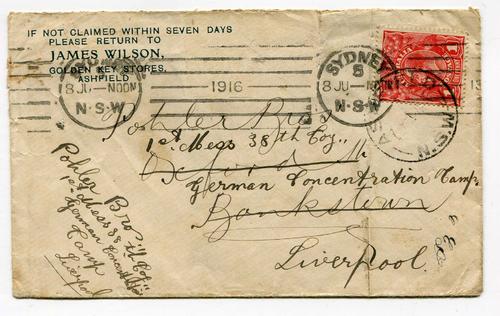 IF NOT CLAIMED WITHIN SEVEN DAYS
PLEASE RETURN TO
JAMES WILSON,
GOLDEN KEY STORES,
ASHFIELD
SYDNEY
8 JU — NOON
N·S·W
1916
SYDNEY
5
8 JU — NOON
N·S·W
Pohler Bros
1st Mess 38th Coy
German Concentration Camp
Bankstown
Liverpool
Pohler Bros
1st Mess 38 Coy
German
Camp
Liverpool